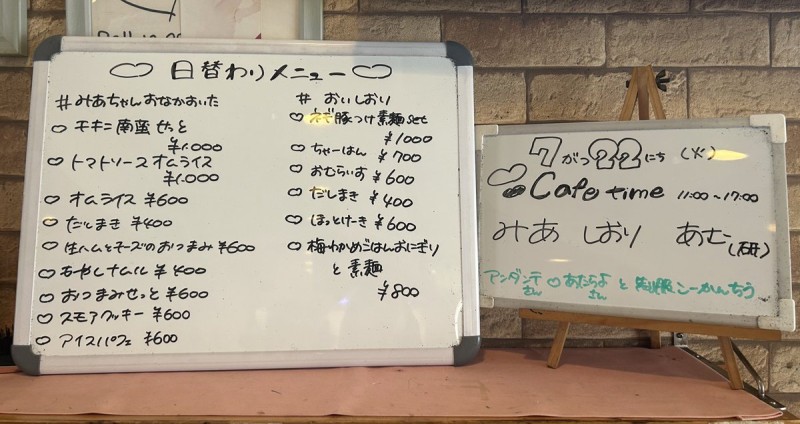 日替わりメニュー
#みあちゃんおなかおいた
チキン南蛮せっと
¥1.000
トマトソースオムライス
¥1.000
オムライス ¥600
だしまき ¥400
生ハムとチーズのおつまみ ¥600
もやしナムル ¥400
おつまみせっと ¥600
スモアクッキー ¥600
アイスパフェ ¥600
# おいしおり
ネギ豚つけ素麺set
¥1000
ちゃーはん ¥700
おむらいす ¥600
だしまき ¥400
ほっとけーき ¥600
梅わかめごはんおにぎり
と素麺
¥800
7がつ22にち (火)
Cafe time 11:00~17:00
みあ しおり あむ(研)
アンダンテさん♡あたらよさんと制服こーかんちう